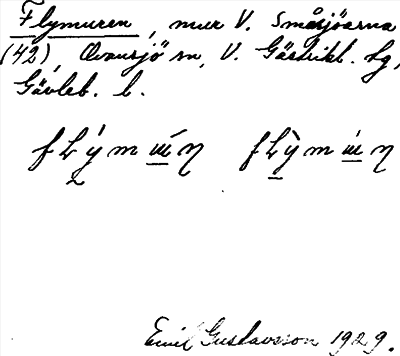 Flymuren, mur V. Småsjöarna
(42), Ovansjö sn, V. Gästrikl. tg,
Gävleb. l.
Emil Gustavsson 1929.